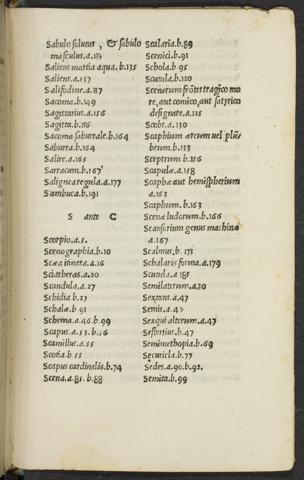 Sabulo solutus, & sabulo
masculus.a.133
Saliens martia aqua.b.135
Salient.a.137
Salifodine.a.137
Sacoma.b.149
Sagittarius.a.156
Sagitta.b.156
Sacoma saburrale.b.164
Saburra.b.164
Salire.a.165
Sarracum.b.167
Salignea regula.a.177
Sambuca.b.191
S ante C
Scorpio.a.5.
Scenographia.b.10
Scæa itinera.a.16
Sciatheras.a.20
Scandula.a.27
Schidia b.27
Schalæ.b 91
Schema.a.46.b.99
Scapus.a.53.b.56
Scamillus.a.55
Scotia.b 55
Scapus cardinalis.b.74
Scena.a.81.b.88
Scalaria.b.89
Scenici.b.91
Schola.b 95
Scutula.b.110
Scenarum frõtes tragico mo
re, aut comico, aut satyrico
designare.a.125
Scobs.a.130
Scaphium ærcum uel plũ
beum.b.133
Sceptrum b.156
Scapulæ.a.158
Scaphæ aut hemispherium
a.163
Scaphum.b.163
Scenæ ludorum.b.166
Scansorium genus machinæ
a.167
Scalmus.b.173
Schalaris forma.a.179
Scutula.a 185
Semilaterum.a.30
Sextans.a.47
Semis.a.47
Sexqui alterum.a.47
Sestertius.b.47
Semimethopia.b.69
Securicla.b.77
Sedes.a.90.b.92.
Semita.b.99